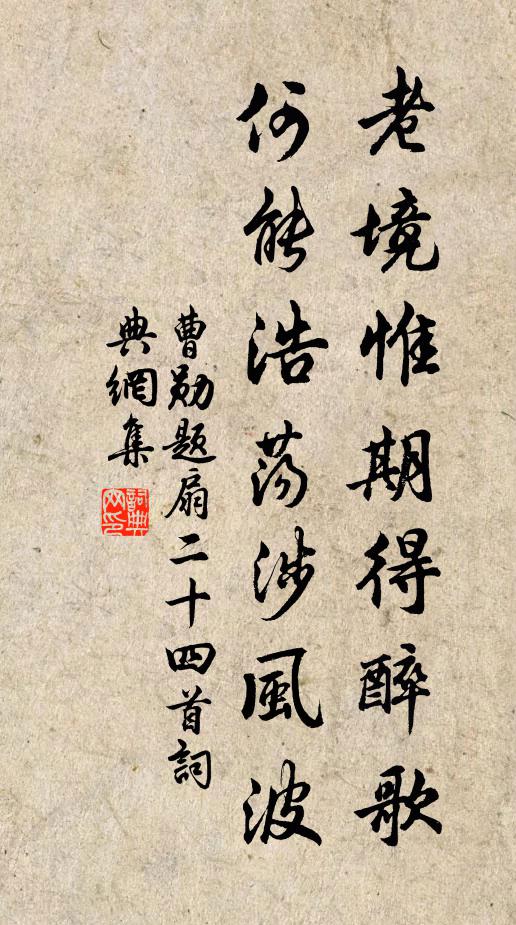 老境惟期得醉歌
何能浩荡涉風波
曹勛題扇二十四首詞
典網集
詞典网印